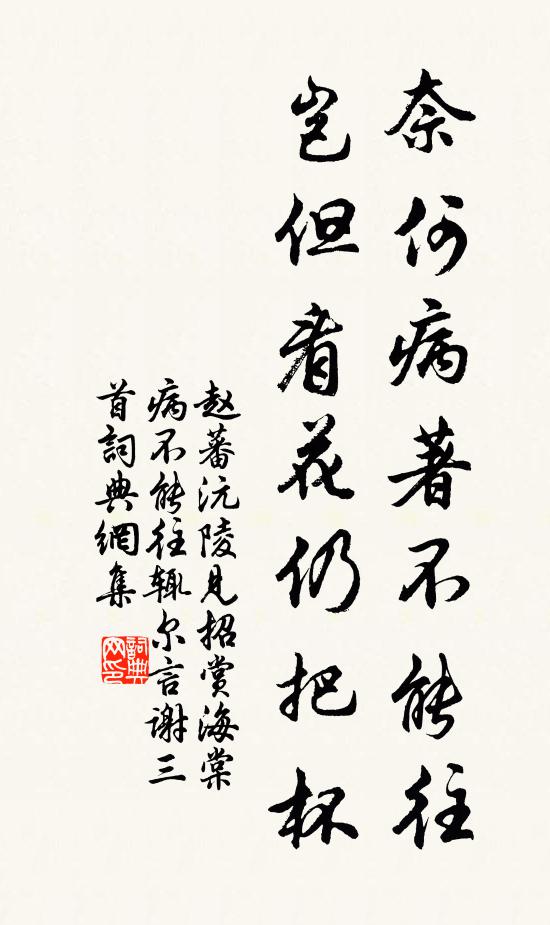 奈何病著不能往
岂但看花仍把杯
赵蕃沅陵见招赏海棠
病不能往辄尔言谢三
首詞典網集
詞典网印